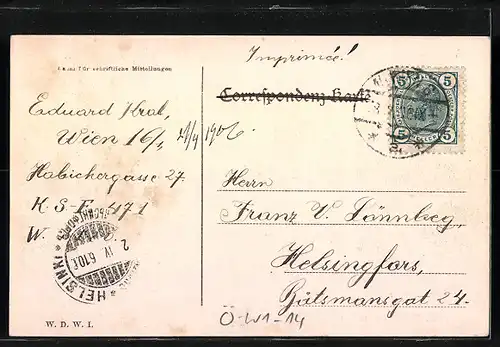 Imprimée!
Raum für schriftliche Mitteilungen
Correspondenz-Karte
5 5
5 5
Eduard
Wien 16/1 21/4 1906.
Habichergasse 27.
K. S. F. 471
W.
Herrn
Franz V. Lönnbeg,
Helsingfors,
Båtsmansgat 24.
HELSINKI
IV 6.10.
W. D. W. I.
Ö-W1-14